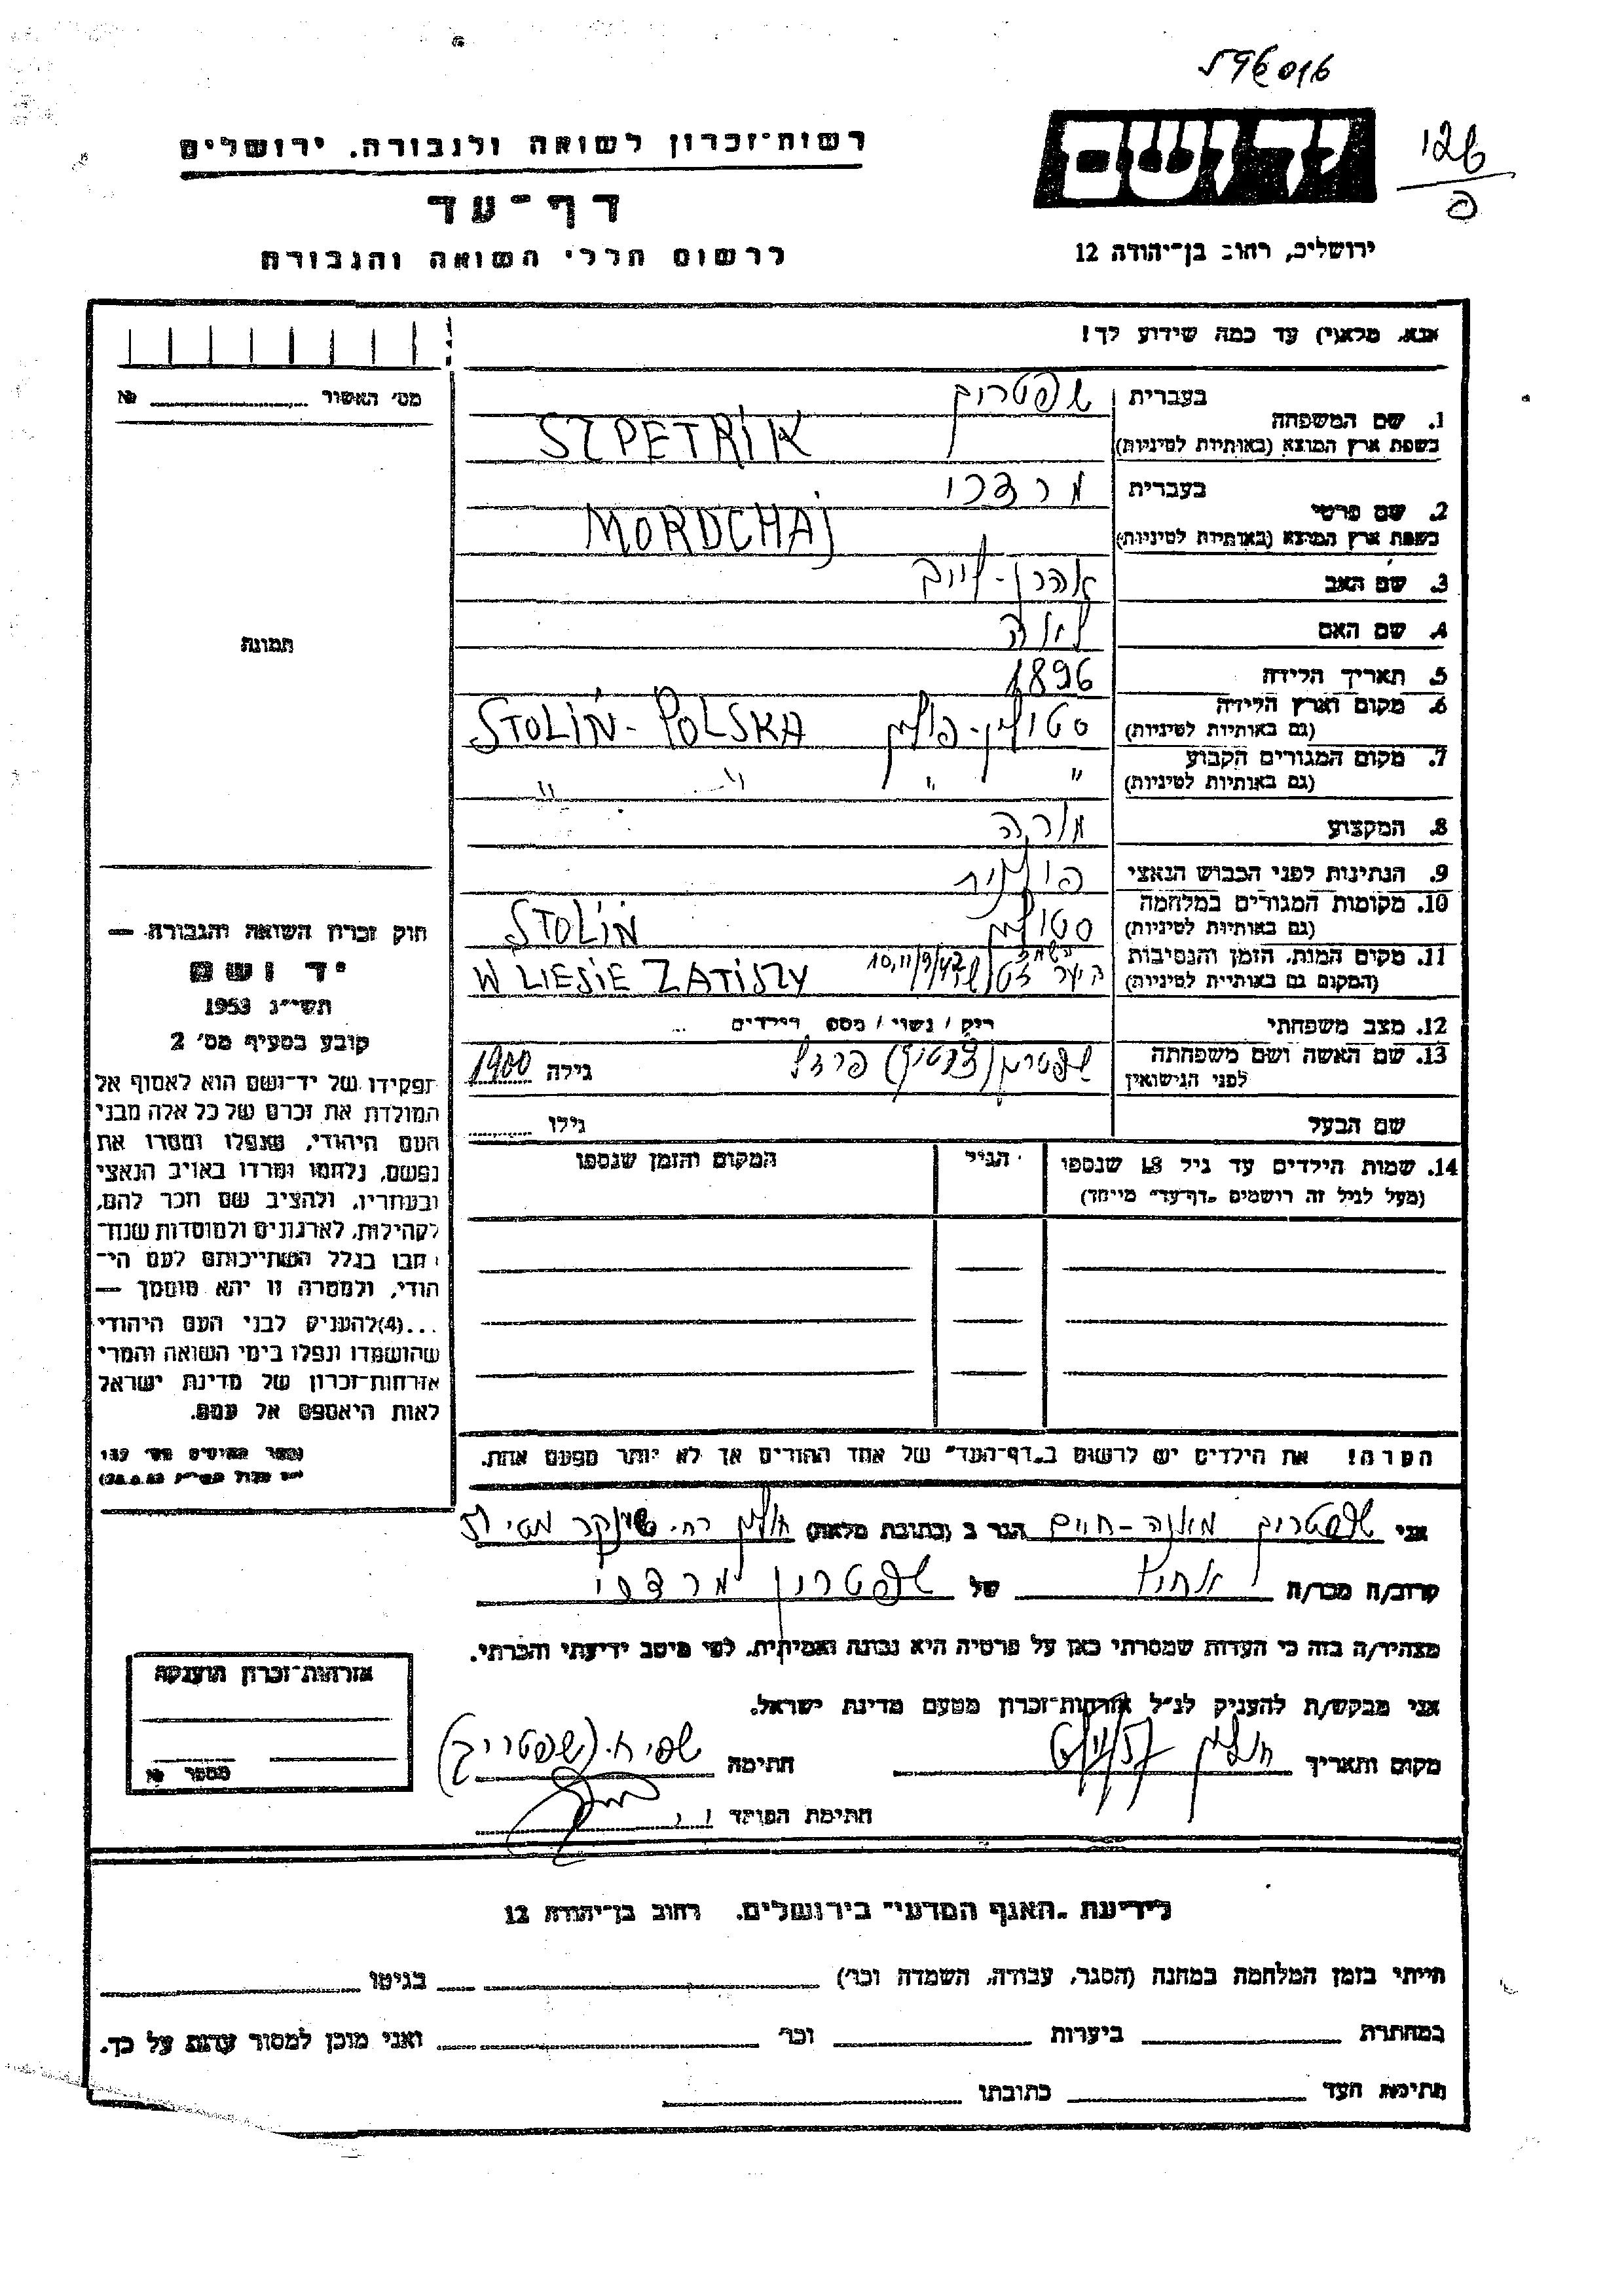 רשות־זכרון לשואה ולגבורה, ירושלים
דף־עד
לרשום חללי השואה והגבורה
יד ושם
ירושלים, רחוב בן־יהודה 12
אנא, מלא(י) עד כמה שידוע לך!
מס׳ האשור № 
תמונה
1. שם המשפחה
בעברית שפטריק
בשפת ארץ המוצא (באותיות לטיניות) SZPETRIK
2. שם פרטי
בעברית מרדכי
בשפת ארץ המוצא (באותיות לטיניות) MORDCHAJ
3. שם האב אהרן-לייב
4. שם האם לאה
5. תאריך הלידה 1896
6. מקום וארץ הלידה (גם באותיות לטיניות) סטולין-פולין STOLIN-POLSKA
7. מקום המגורים הקבוע (גם באותיות לטיניות) " " " "
8. המקצוע מורה
9. הנתינות לפני הכבוש הנאצי פולנית
10. מקומות המגורים במלחמה (גם באותיות לטיניות) סטולין STOLIN
11. מקום המות, הזמן והנסיבות (המקום גם באותיות לטיניות) 10,11/9/42 W LIESIE ZATISZY
12. מצב משפחתי רוק / נשוי / מספר הילדים
13. שם האשה ושם משפחתה לפני הנישואין שפטריק פרדל גילה 1900
שם הבעל גילו
14. שמות הילדים עד גיל 18 שנספו (מעל לגיל זה רושמים „דף־עד" מיוחד) הגיל המקום והזמן שנספו
הערה! את הילדים יש לרשום ב„דף־העד" של אחד ההורים אך לא יותר מפעם אחת.
חוק זכרון השואה והגבורה —
יד ושם
תשי״ג 1953
קובע בסעיף מס׳ 2
תפקידו של יד־ושם הוא לאסוף אל
המולדת את זכרם של כל אלה מבני
העם היהודי, שנפלו ומסרו את
נפשם, נלחמו ומרדו באויב הנאצי
ובעוזריו, ולהציב שם וזכר להם,
לקהילות, לארגונים ולמוסדות שנח־
רבו בגלל השתייכותם לעם הי־
הודי, ולמטרה זו יהא מוסמך —
...(4)להעניק לבני העם היהודי
שהושמדו ונפלו בימי השואה והמרי
אזרחות־זכרון של מדינת ישראל
לאות היאספם אל עמם.
אני שפטריק חיים הגר ב (כתובת מלאה) חולון רח׳
קרוב/ה מכר/ה אחיו של שפטריק מרדכי
מצהיר/ה בזה כי העדות שמסרתי כאן על פרטיה היא נכונה ואמיתית, לפי מיטב ידיעתי והכרתי.
אני מבקש/ת להעניק לנ״ל אזרחות־זכרון מטעם מדינת ישראל.
מקום ותאריך חולון חתימה (שפטריק)
חתימת הפוקד
אזרחות־זכרון הוענקה
מספר №
לידיעת „האגף המדעי" בירושלים, רחוב בן־יהודה 12
הייתי בזמן המלחמה במחנה (הסגר, עבודה, השמדה וכו׳) בגיטו
במחתרת ביערות וכו׳ ואני מוכן למסור עדות על כך.
חתימת העד כתובתו